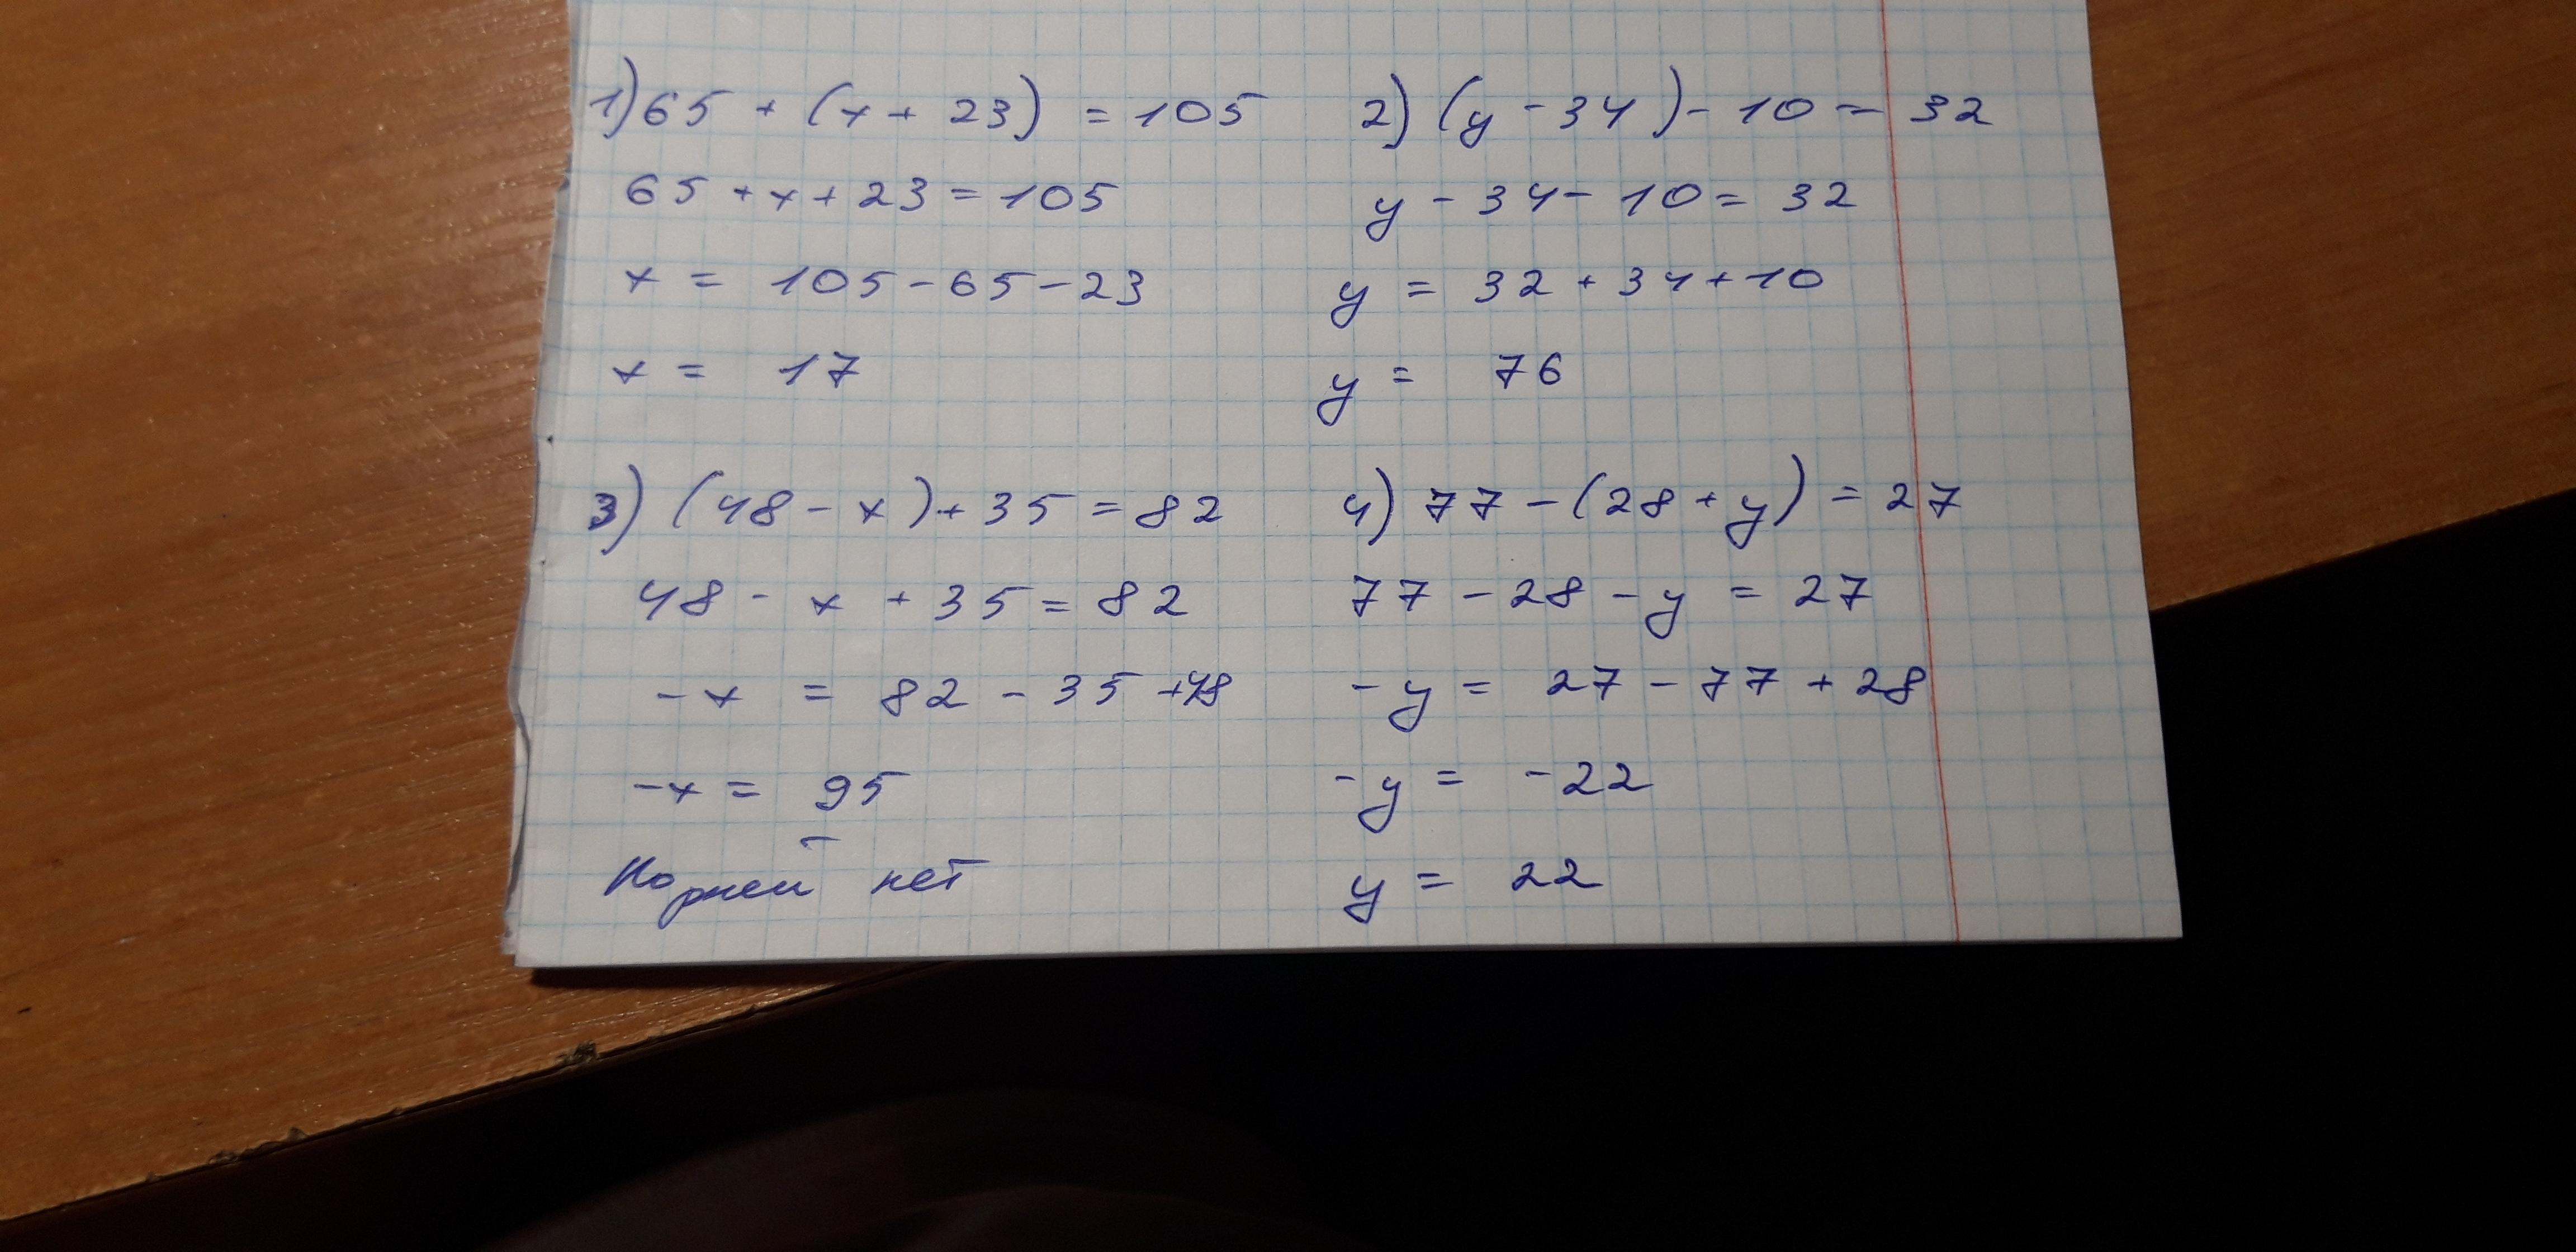 1) 65 + (x + 23) = 105
65 + x + 23 = 105
x = 105 - 65 - 23
x = 17
2) (y - 34) - 10 = 32
y - 34 - 10 = 32
y = 32 + 34 + 10
y = 76
3) (48 - x) + 35 = 82
48 - x + 35 = 82
-x = 82 - 35 + 48
-x = 95
Корней нет
4) 77 - (28 + y) = 27
77 - 28 - y = 27
-y = 27 - 77 + 28
-y = -22
y = 22